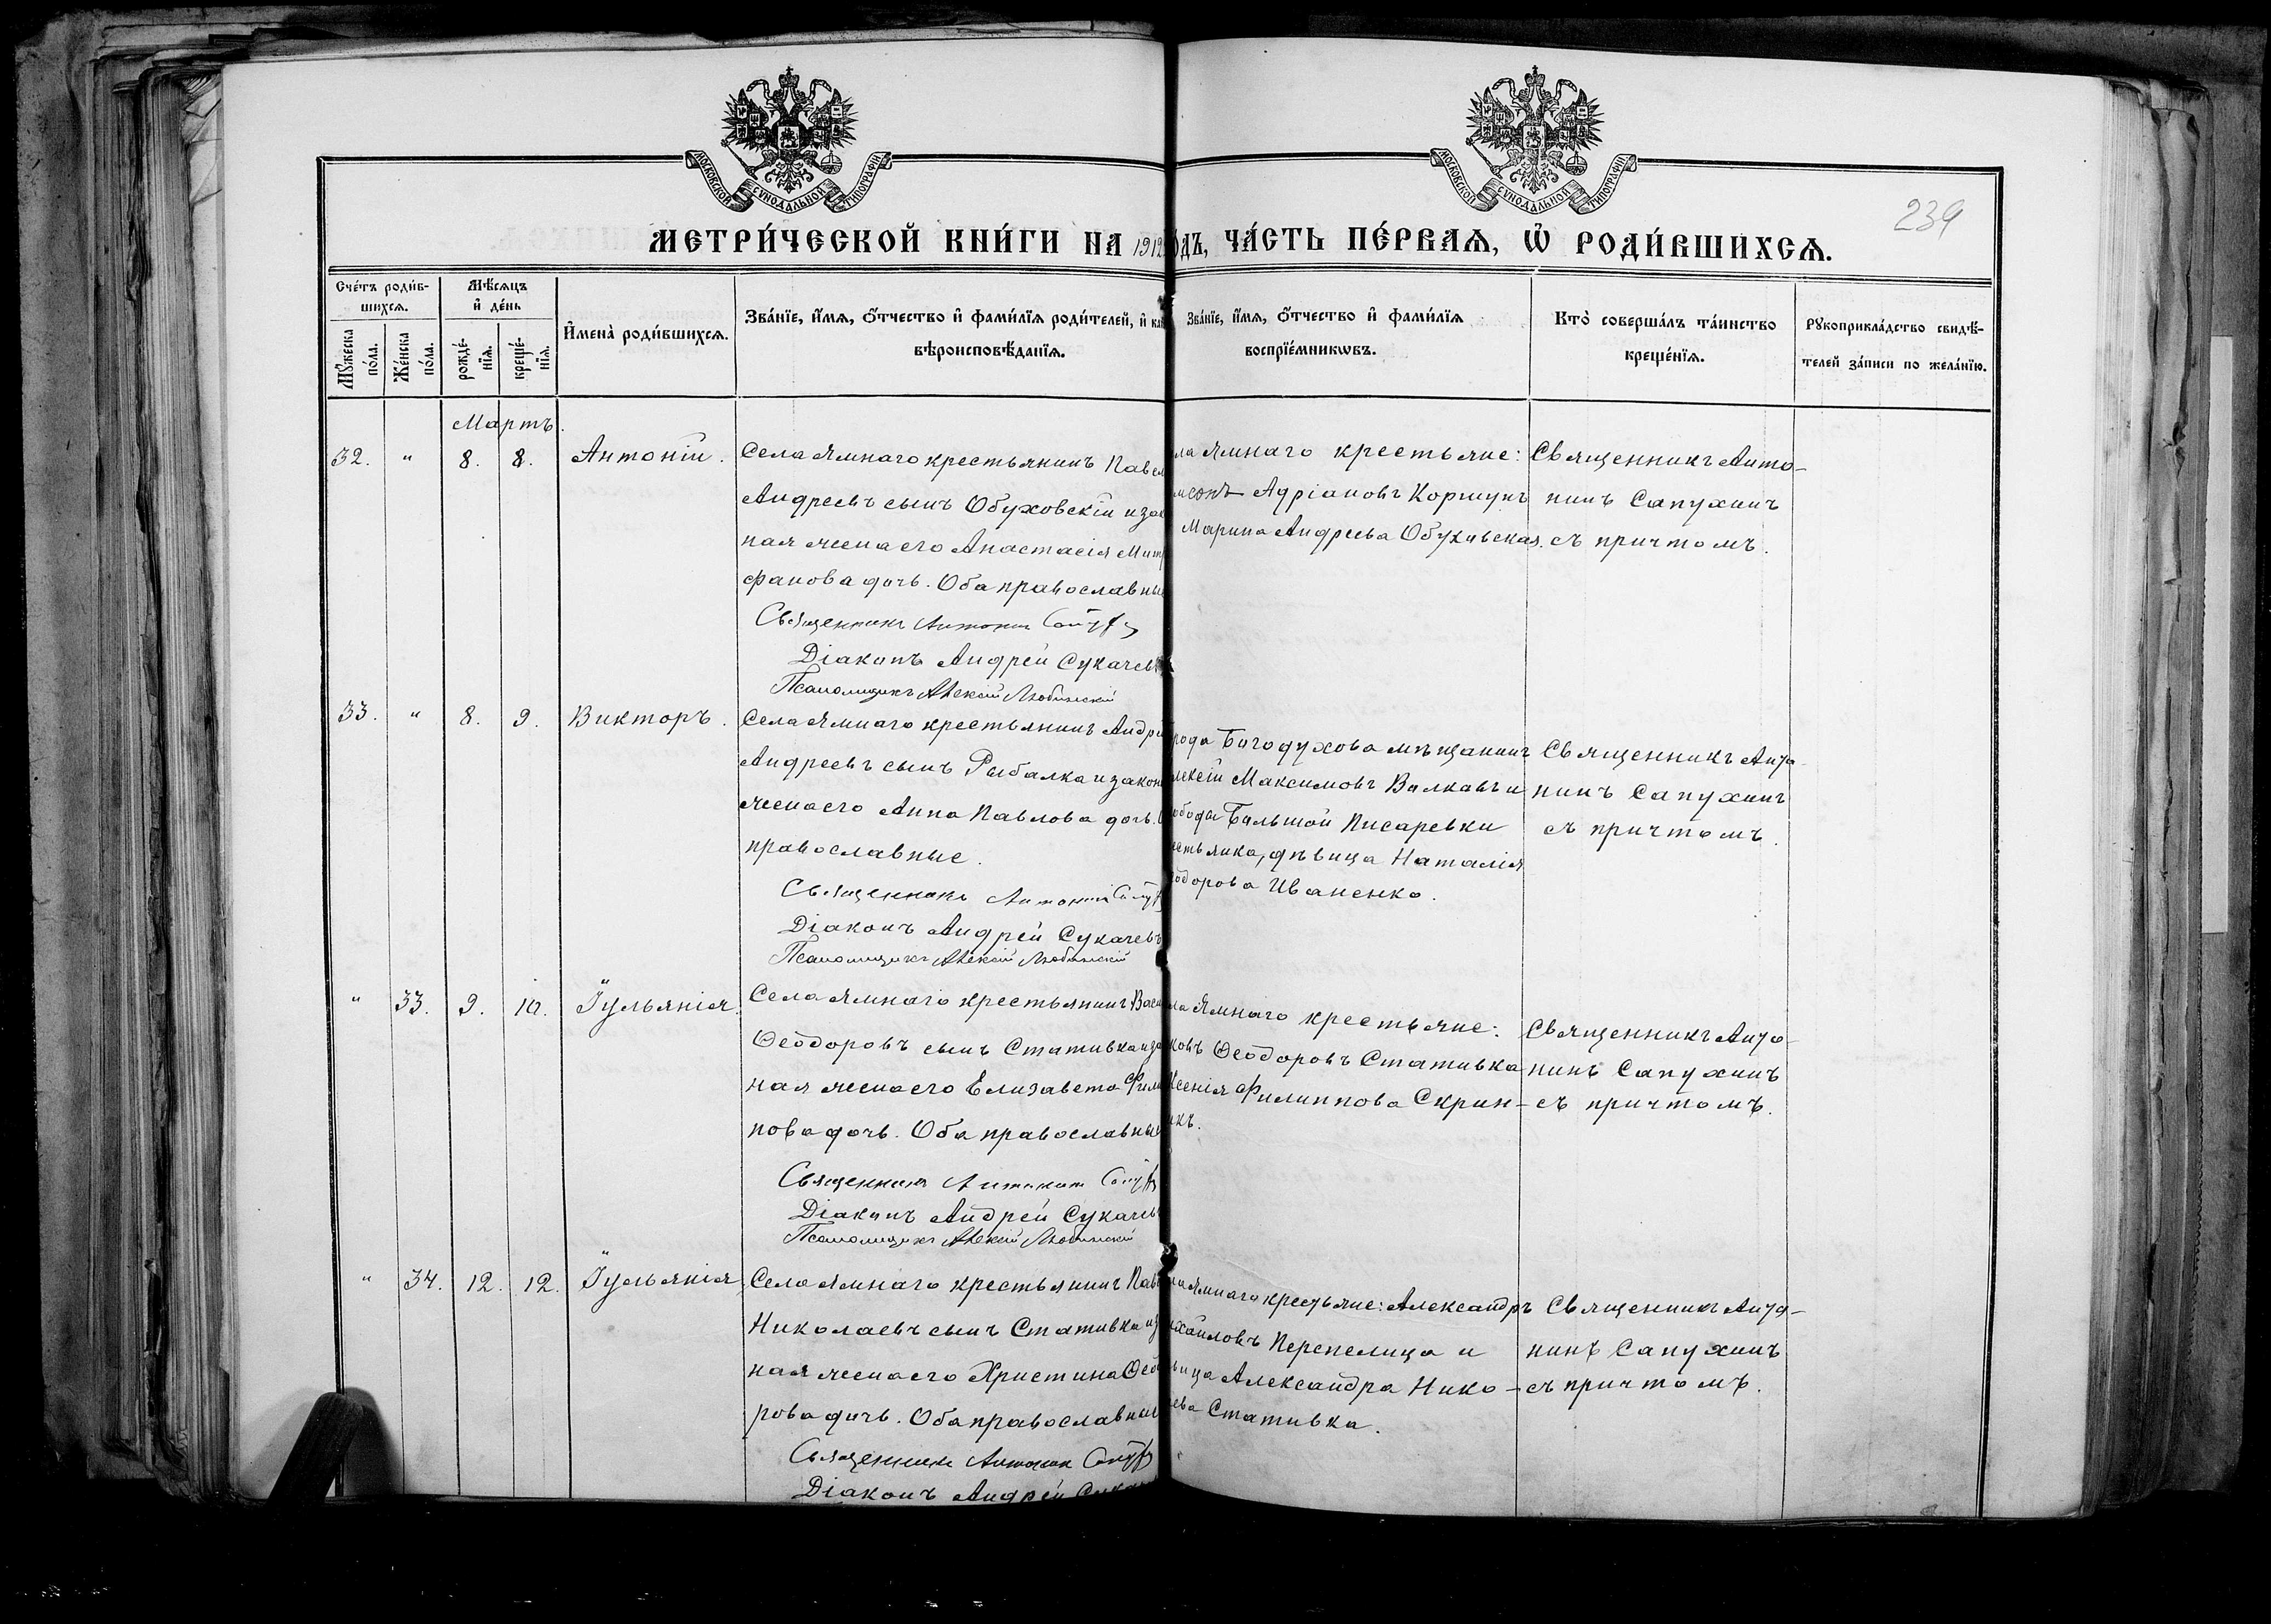 МОСКОВСКОЙ СУНОДАЛЬНОЙ ТИПОГРАФІИ
МОСКОВСКОЙ СУНОДАЛЬНОЙ ТИПОГРАФІИ
239
МЕТРИ́ЧЕСКОЙ КНИ́ГИ НА 1912
ОДЪ, ЧА́СТЬ ПЕ́РВАѦ, Ѡ҆ РОДИ́ВШИХСѦ.
Сче́тъ роди́в-
шихсѧ.
Мꙋ́жеска по́ла.
Же́нска по́ла.
Мѣ́сѧцъ
и҆ де́нь
рожде́-
нїѧ.
креще́-
нїѧ.
И҆мена̀ роди́вшихсѧ.
Зва́нїе, и҆́мѧ, ѻ҆́тчество и҆ фами́лїѧ роди́телей, и҆ как
вѣроисповѣ́данїѧ.
Зва́нїе, и҆́мѧ, ѻ҆́тчество и҆ фами́лїѧ
воспрїе́мникѡвъ.
Кто̀ соверша́лъ та́инство
креще́нїѧ.
Рꙋкоприкла́дство свидѣ́-
телей за́писи по жела́нїю.
Мартъ.
32. " 8. 8. Антоній.
Села Ямнаго крестьянинъ Павел
Андреевъ сынъ Обуховскій и зак
ная жена его Анастасія Митр
фанова дочь. Оба православны
Священникъ Антонин
Діаконъ Андрей Сукачевъ
Псаломщикъ Алексій Любинскій
ла Ямнаго крестьяне:
Адріановъ Коршунъ
Марина Андреева Обуховская.
Священникъ Анто-
нинъ Сапухинъ
съ причтомъ.
33. " 8. 9. Викторъ.
Села Ямнаго крестьянинъ Андре
Андреевъ сынъ Рыбалка и закон
жена его Анна Павлова дочь. О
православные.
Священникъ Антонин
Діаконъ Андрей Сукачевъ
Псаломщикъ Алексій Любинскій
рода Богодухова мѣщанинъ
лексій Максимовъ Валкавъ и
ободы Большой Писаревки
естьянка, дѣвица Наталія
одорова Иваненко.
Священникъ Анто-
нинъ Сапухинъ
съ причтомъ.
" 33. 9. 10. Іульянія.
Села Ямнаго крестьянинъ Васи
Ѳеодоровъ сынъ Стативка и за
ная жена его Елизавета Фили
пова дочь. Оба православны
Священникъ Антонин
Діаконъ Андрей Сукачев
Псаломщикъ Алексій Любинскій
ла Ямнаго крестьяне:
ковъ Ѳеодоровъ Стативка
Ксенія Филиппова Скрин-
икъ.
Священникъ Анто-
нинъ Сапухинъ
съ причтомъ.
" 34. 12. 12. Іульянія.
Села Ямнаго крестьянинъ Пав
Николаевъ сынъ Стативка и з
ная жена его Христина Ѳеод
рова дочь. Оба православны
Священникъ Антонин
Діаконъ Андрей Сукач
ла Ямнаго крестьяне: Александръ
ихайловъ Перепелица и
вица Александра Нико-
аева Стативка.
Священникъ Анто-
нинъ Сапухинъ
съ причтомъ.